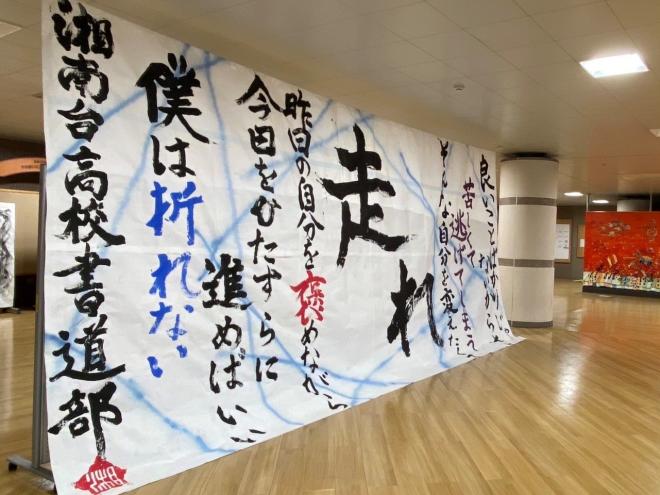 良いことばかり
苦しくて
逃げてしまう
そんな自分を変えた
走れ
昨日の自分を褒めながら
今日をひたすらに
進めばいい
僕は折れない
湘南台高校書道部